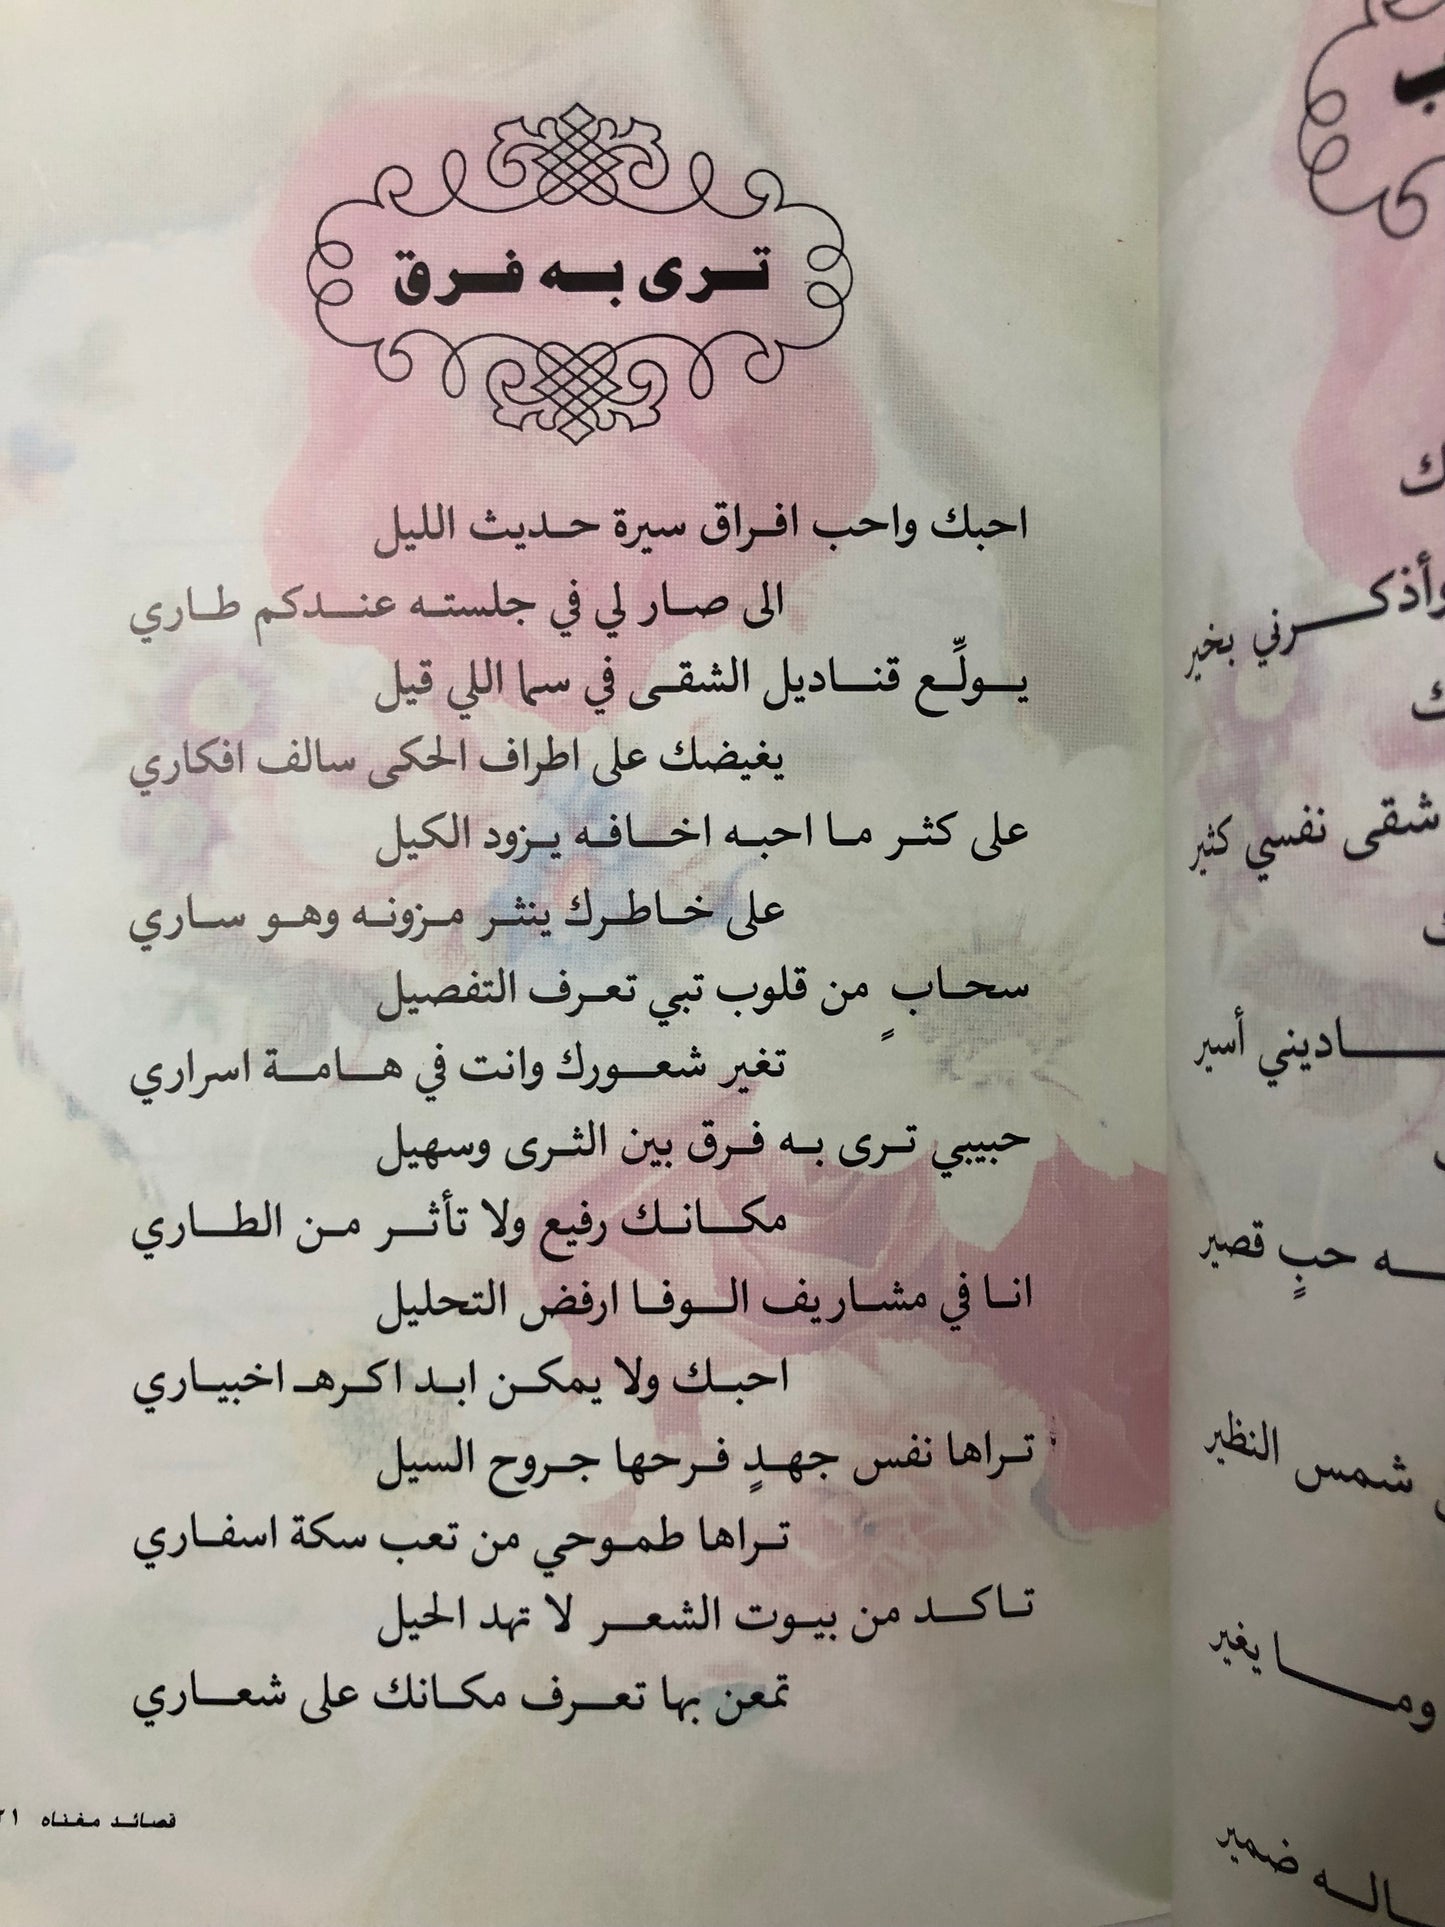 ترى به فرق
احبك واحب افراق سيرة حديث الليل
الى صار لي في جلسته عندكم طاري
يولِّع قناديل الشقى في سما اللي قيل
يغيضك على اطراف الحكى سالف افكاري
على كثر ما احبه اخافه يزود الكيل
على خاطرك ينثر مزونه وهو ساري
سحابٍ من قلوب تبي تعرف التفصيل
تغير شعورك وانت في هامة اسراري
حبيبي ترى به فرق بين الثرى وسهيل
مكانك رفيع ولا تأثر من الطاري
انا في مشاريف الوفا ارفض التحليل
احبك ولا يمكن ابد اكرهـ اخبياري
تراها نفس جهدٍ فرحها جروح السيل
تراها طموحي من تعب سكة اسفاري
تاكد من بيوت الشعر لا تهد الحيل
تمعن بها تعرف مكانك على شعاري
قصائد مغناه ٢١
ب
ك
وأذكرني بخير
ك
شقى نفسي كثير
ك
اديني أسير
ه حبٍ قصير
شمس النظير
وما يغير
اله ضمير